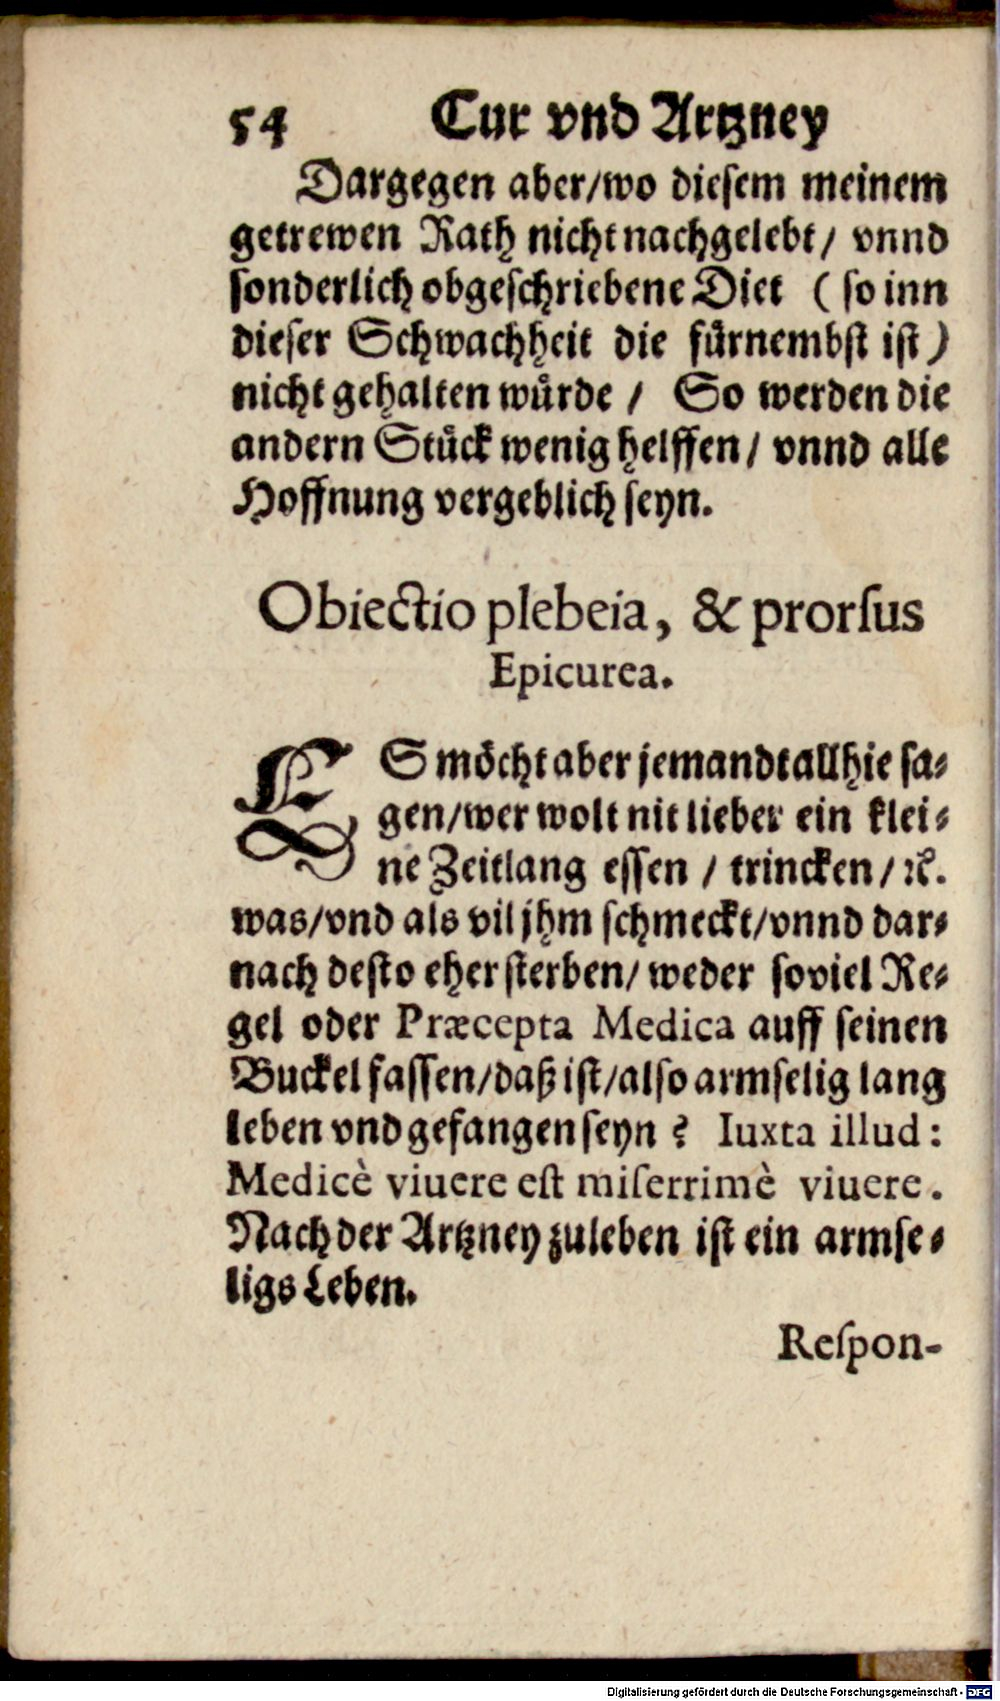 54 Cur vnd Artzney
Dargegen aber/wo diesem meinem
getrewen Rath nicht nachgelebt/ vnnd
sonderlich obgeschriebene Diet ( so inn
dieser Schwachheit die fuͤrnembst ist)
nicht gehalten wuͤrde / So werden die
andern Stuͤck wenig helffen/ vnnd alle
Hoffnung vergeblich seyn.
Obiectio plebeia, & prorſus
Epicurea.
ES moͤcht aber jemandt allhie sa⸗
gen/wer wolt nit lieber ein klei⸗
ne Zeitlang essen / trincken/ ꝛc.
was/vnd als vil jhm schmeckt/vnnd dar⸗
nach desto eher sterben/ weder soviel Re⸗
gel oder Præcepta Medica auff seinen
Buckel fassen/daß ist/also armselig lang
leben vnd gefangen seyn? Iuxta illud:
Medicè viuere eſt miſerrimè viuere.
Nach der Artzney zuleben ist ein armse⸗
ligs Leben.
Reſpon-
Digitalisierung gefördert durch die Deutsche Forschungsgemeinschaft - DFG